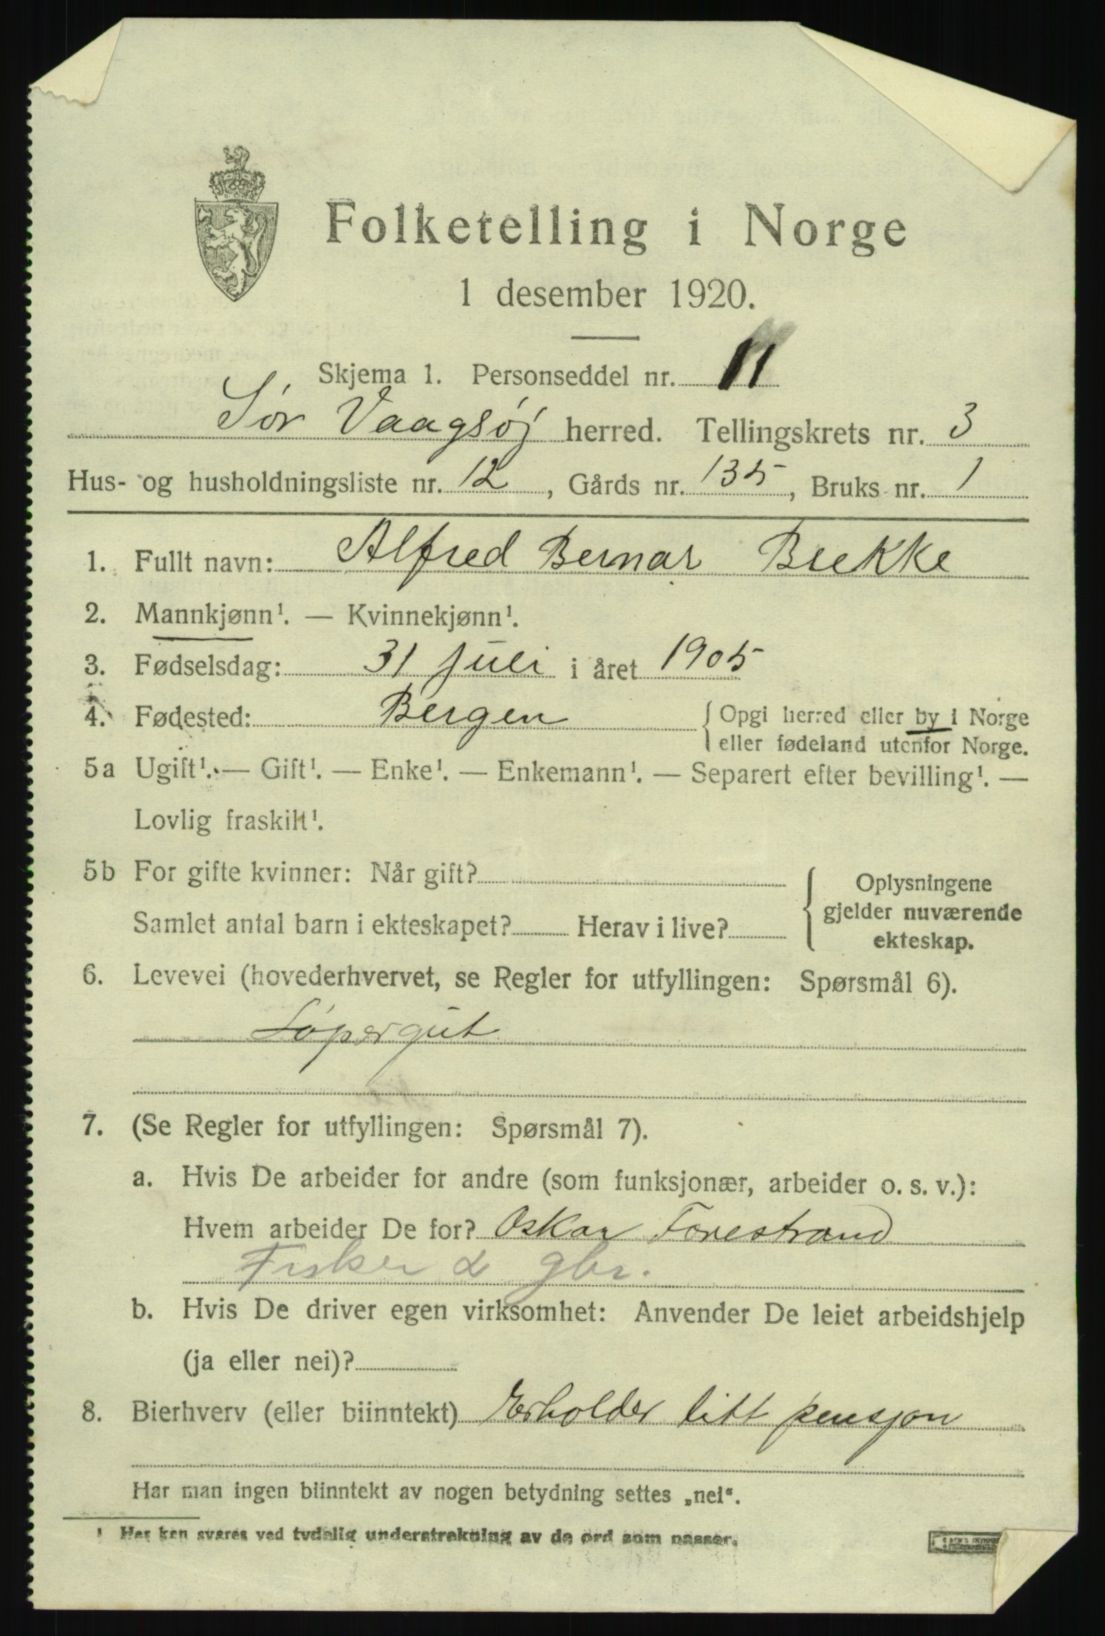 Folketelling i Norge
1 desember 1920.
Skjema 1. Personseddel nr. 11
Sør Vaagsøj herred. Tellingskrets nr. 3
Hus- og husholdningsliste nr. 12, Gårds nr. 135, Bruks nr. 1
1. Fullt navn: Alfred Bernar Brekke
2. Mannkjønn¹. — Kvinnekjønn¹.
3. Fødselsdag: 31 juli i året 1905
4. Fødested: Bergen { Opgi herred eller by i Norge
eller fødeland utenfor Norge.
5a Ugift¹. — Gift¹. — Enke¹. — Enkemann¹. — Separert efter bevilling¹. —
Lovlig fraskilt¹.
5b For gifte kvinner: Når gift?
Samlet antal barn i ekteskapet? Herav i live?
{ Oplysningene
gjelder nuværende
ekteskap.
6. Levevei (hovederhvervet, se Regler for utfyllingen: Spørsmål 6).
Løpergut
7. (Se Regler for utfyllingen: Spørsmål 7).
a. Hvis De arbeider for andre (som funksjonær, arbeider o. s. v.):
Hvem arbeider De for? Oskar Forestrand
Fisker & gbr.
b. Hvis De driver egen virksomhet: Anvender De leiet arbeidshjelp
(ja eller nei)?
8. Bierhverv (eller biinntekt) Erholder litt pensjon
Har man ingen biinntekt av nogen betydning settes „nei“.
¹ Her kan svares ved tydelig understrekning av de ord som passer.